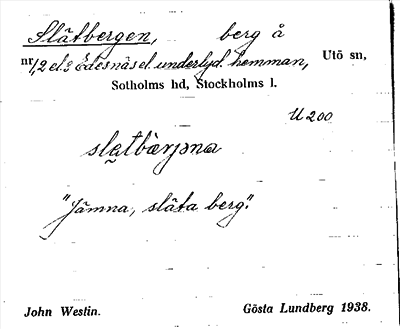 Slätbergen, berg å
nr 1, 2 el. 3 Edesnäs el. underlyd. hemman, Utö sn,
Sotholms hd, Stockholms l.
U 200
"Jämna, släta berg".
John Westin. Gösta Lundberg 1938.